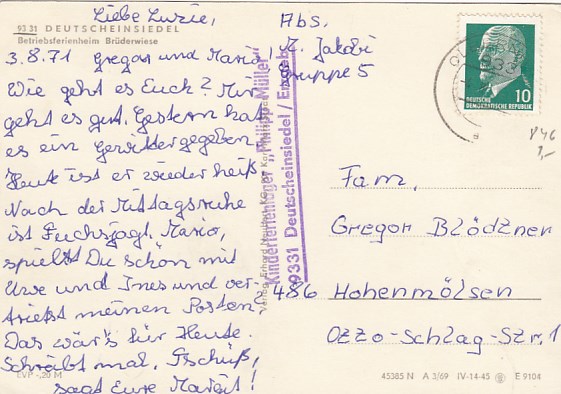 Liebe Luzie,
93 31 DEUTSCHEINSIEDEL
Betriebsferienheim Brüderwiese
3.8.71 Gregor und Mario!
Wie geht es Euch? Mir
geht es gut. Gestern hat
es ein Gewitter gegeben.
Heute ist er wieder heiß
Nach der Mittagsruhe
ist Fuchsjagt. Mario,
spielst Du schön mit
Uwe und Ines und ver-
trittst meinen Posten.
Das wär's für Heute.
Schreibt mal. Tschüß,
sagt Eure Margit!
EVP -,20 M
Abs.
M. Jakobi
Gruppe 5
Kinderferienlager "Philipp Müller"
9331 Deutscheinsiedel / Erzgeb.
Verlag Erhard Neubert KG
10
DEUTSCHE
DEMOKRATISCHE REPUBLIK
Fam.
Gregor Blödzner
486 Hohenmölsen
Otto-Schlag-Str. 1
45385 N A 3/69 IV-14-45 E 9104